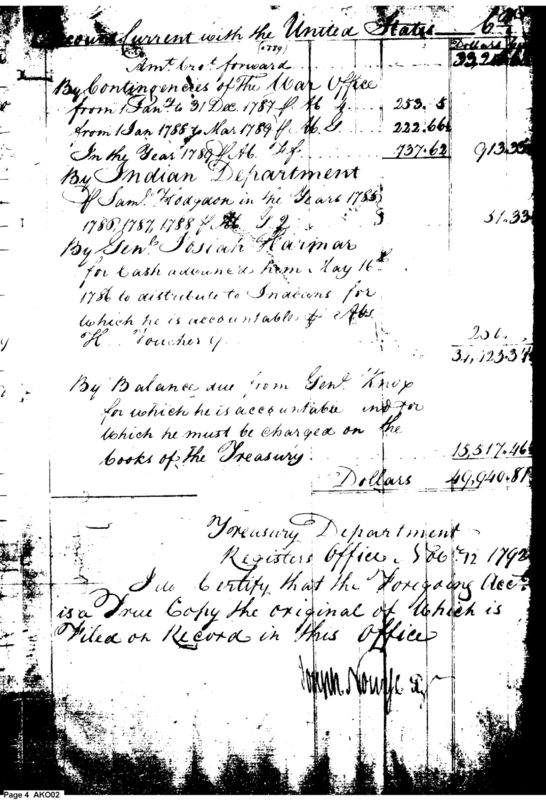 Account Current with the United States
Dollars
Amt. brot. forward
By Contingencies of The War Office
from 1 Jany. to 31 Dec. 1787 ℔ Ab 4 253.5
from 1 Jan 1788 to Mar 1789 ℔ Ab. G 222.66
In the Year 1789 ℔ Ab. 437.62 913.33
By Indian Department
℔ Saml. Hodgdon in the Years 1785
1786, 1787, 1788 ℔ Ab G 2 51.33
By Genl. Josiah Harmar
for Cash advanced him May 16th
1786 to distribute to Indians for
which he is accountable ℔ Abs
H Voucher 9 200.
By Balance due from Genl. Knox
for which he is accountable and for
which he must be charged on the
books of the Treasury 15,517.46
Dollars 49,940.81
Treasury Department
Registers Office 12 1792
I do Certify that the Foregoing Acct.
is a True Copy the original of Which is
Filed on Record in this Office
Joseph Nourse
Page 4 AKO02